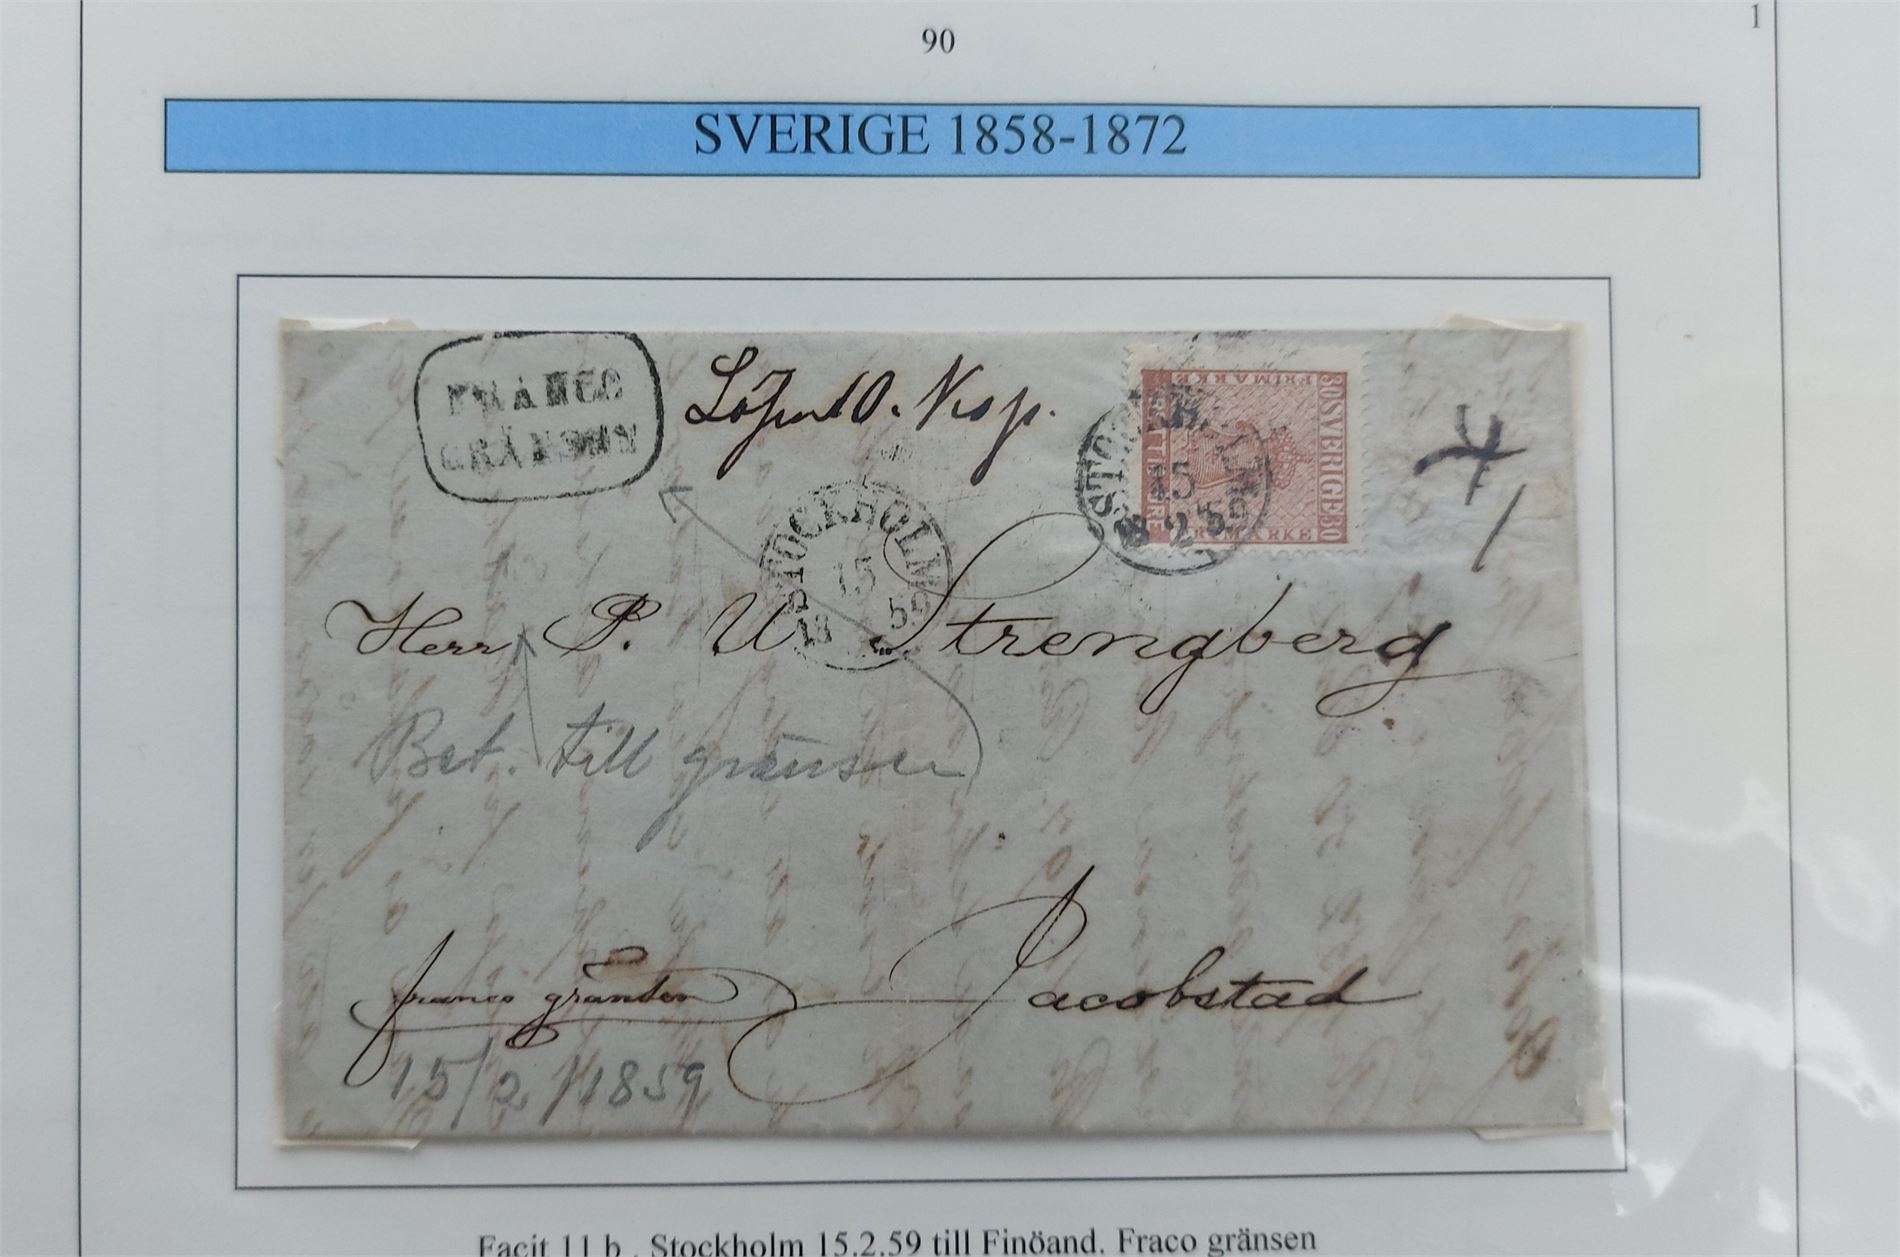 1
90
SVERIGE 1858-1872
FRANCO
GRÄNSEN
FRIMARKE
30 SVERIGE 30
TRETTIO ÖRE
FRIMARKE
STOCKHOLM
15
18 2 59
STOCKHOLM
15
18 59
Herr P. U Strengberg
Bet. till gränsen
franco gränsen
Jacobstad
15/2 1859
Facit 11 b . Stockholm 15.2.59 till Finöand. Fraco gränsen